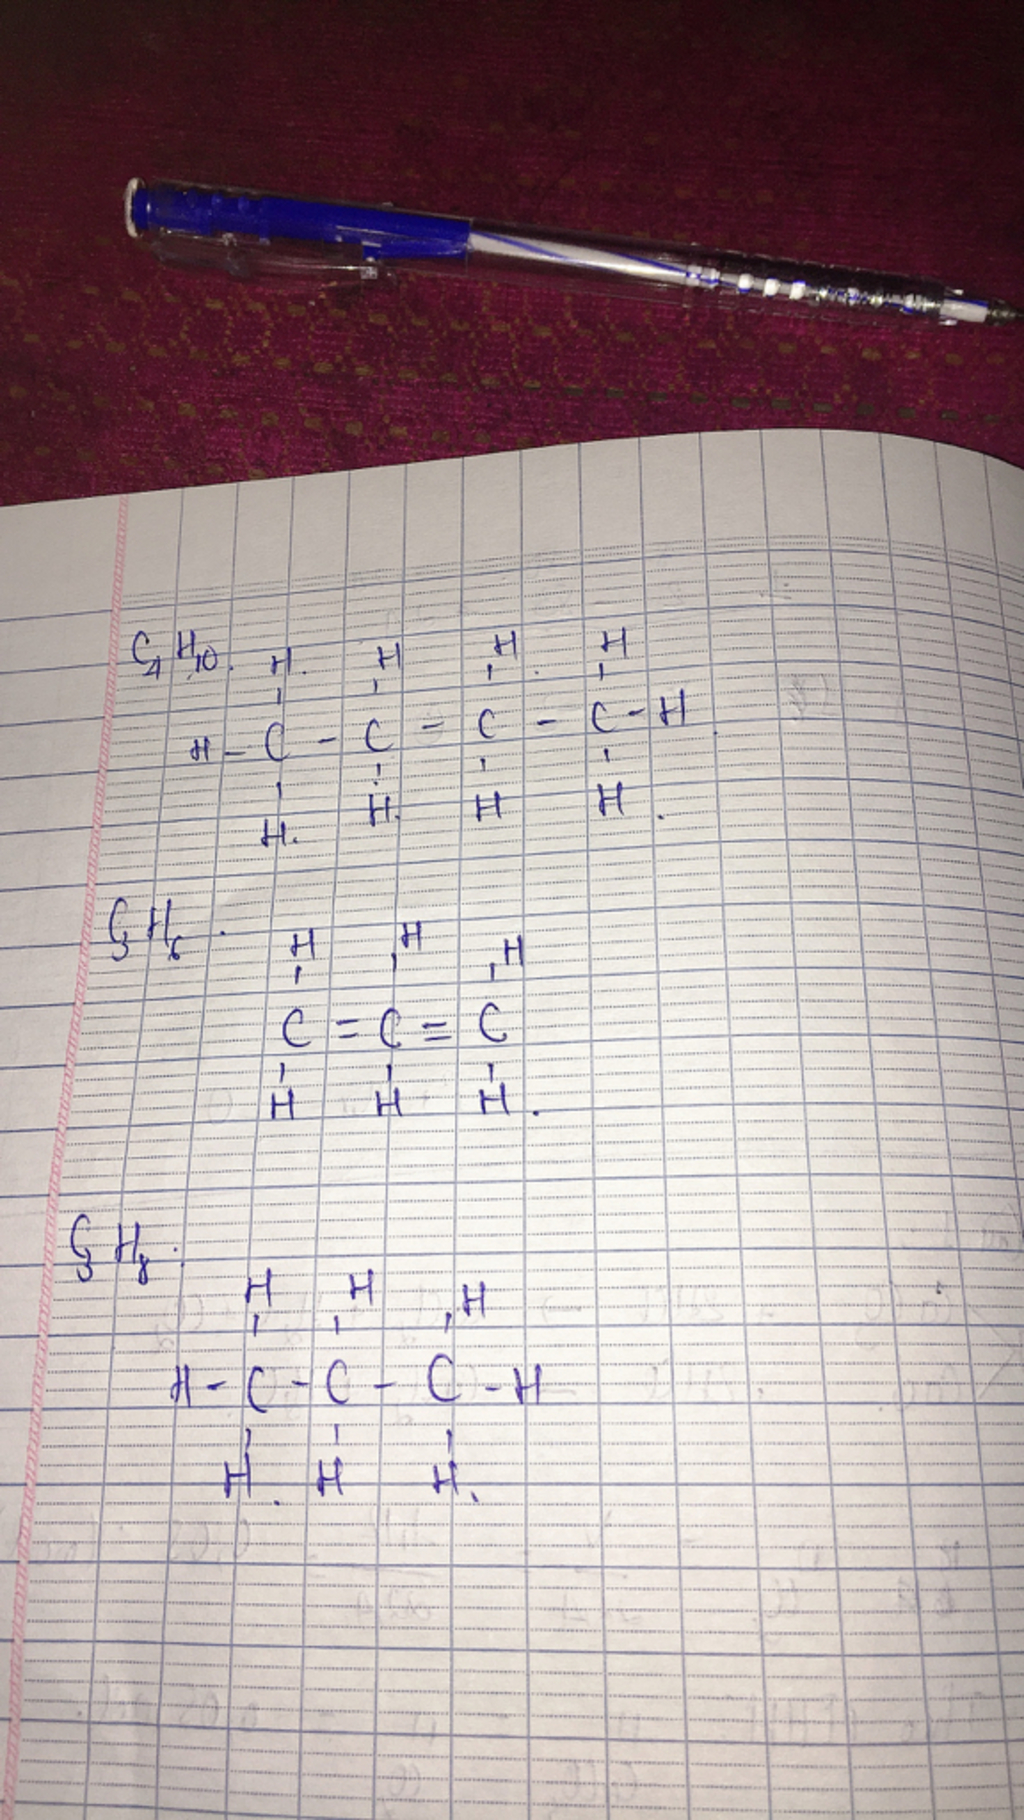 C4H10. H. H H. H
H - C - C - C - C - H
H. H. H H.
C3H6. H H H
C = C = C
H H H.
C3H8.
H H H
H - C - C - C - H
H. H H.